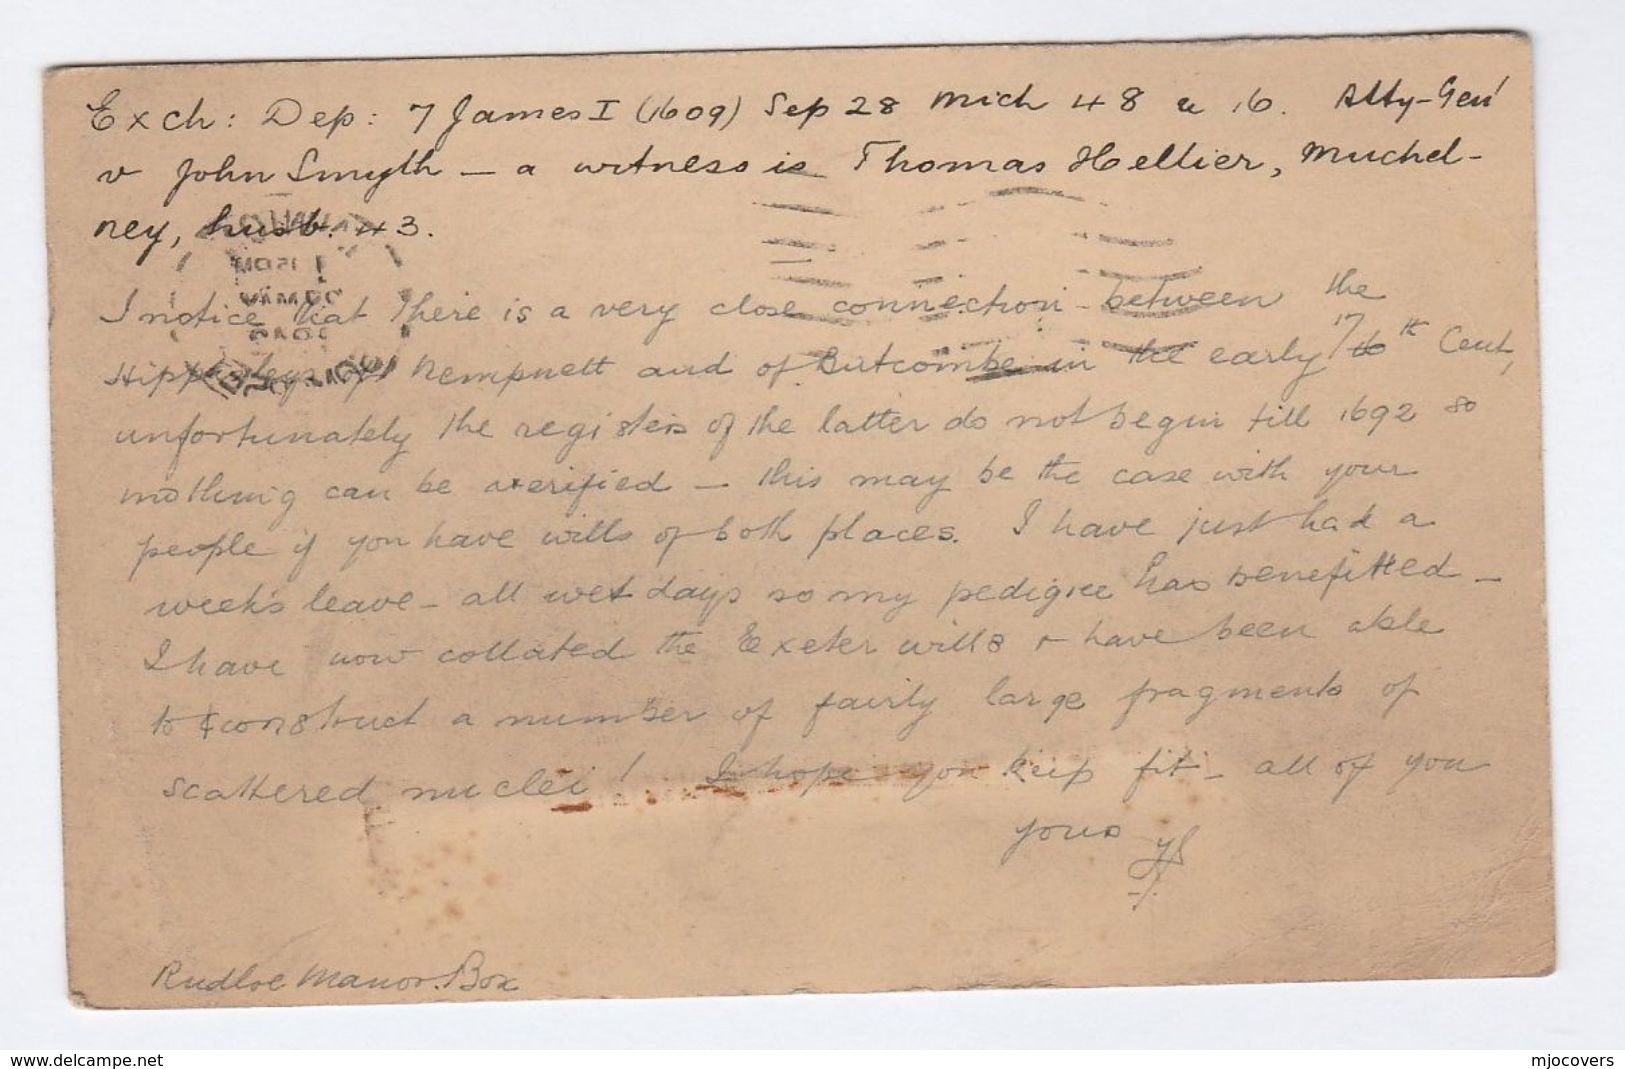 Exch: Dep: 7 James I (1609) Sep 28 Mich 48 & 16. Atty-Gen'l
v John Smyth – a witness is Thomas Hellier, Muchel-
ney, husb. 43.
I notice that there is a very close connection between the
Hippisleys of Nempnett and of Butcombe in the early 17 16th Cent,
unfortunately the registers of the latter do not begin till 1692 so
nothing can be verified – this may be the case with your
people if you have wills of both places. I have just had a
week's leave – all wet days so my pedigree has benefitted –
I have now collated the Exeter wills & have been able
to construct a number of fairly large fragments of
scattered nuclei! I hope you keep fit – all of you
yours
Rudloe Manor. Box
www.delcampe.net
mjocovers